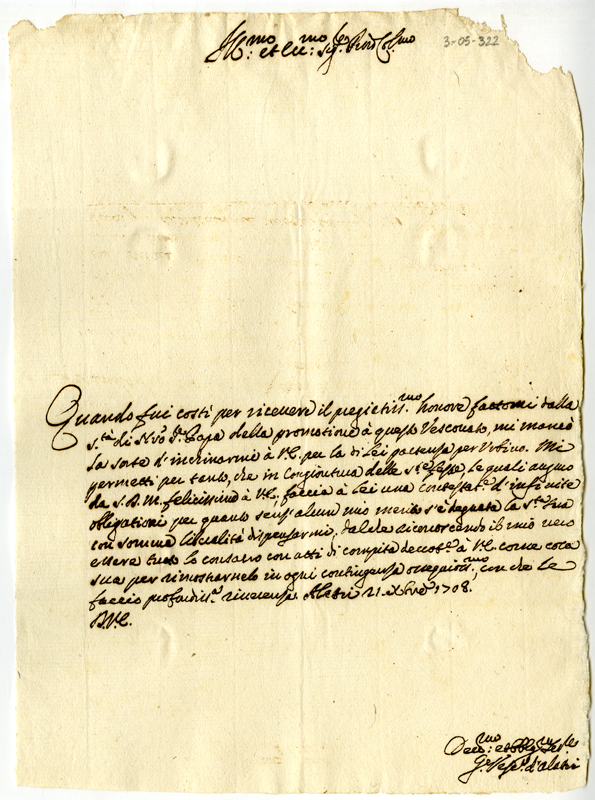 Ill.mo et Ecc.mo Sig.re Pro'n Col.mo
3-05-322
Quando fui costì per ricevere il pregiatiss.mo honore fattomi dalla
S.tà di N'ro S.re Papa della promotione à questo Vescouato, mi mancò
la sorte d'inchinarmi à V.E. per la di Lei partenza per Urbino. Mi
permetti per tanto, che in Congiontura delle S.te feste, le quali auguro
da S.D.M. felicissime à V.E., faccia à Lei una Contestat.e d'infinite
obligationi per quanto senz'alcun mio merito s'è degnata la S.tà Sua
con somma liberalità dispensarmi, dalche riconoscendo il mio vero
essere tutto lo consacro con atti di compita à V.E. come cosa
sua per rimostrarmele in ogni contingenza ossequios.mo, con che le
faccio profondiss.a riuerenza. Alatri 21 Xbre 1708.
D.V.E.
Deu.mo et Obblig.mo Ser.re
G. Vesc.o d'Alatri